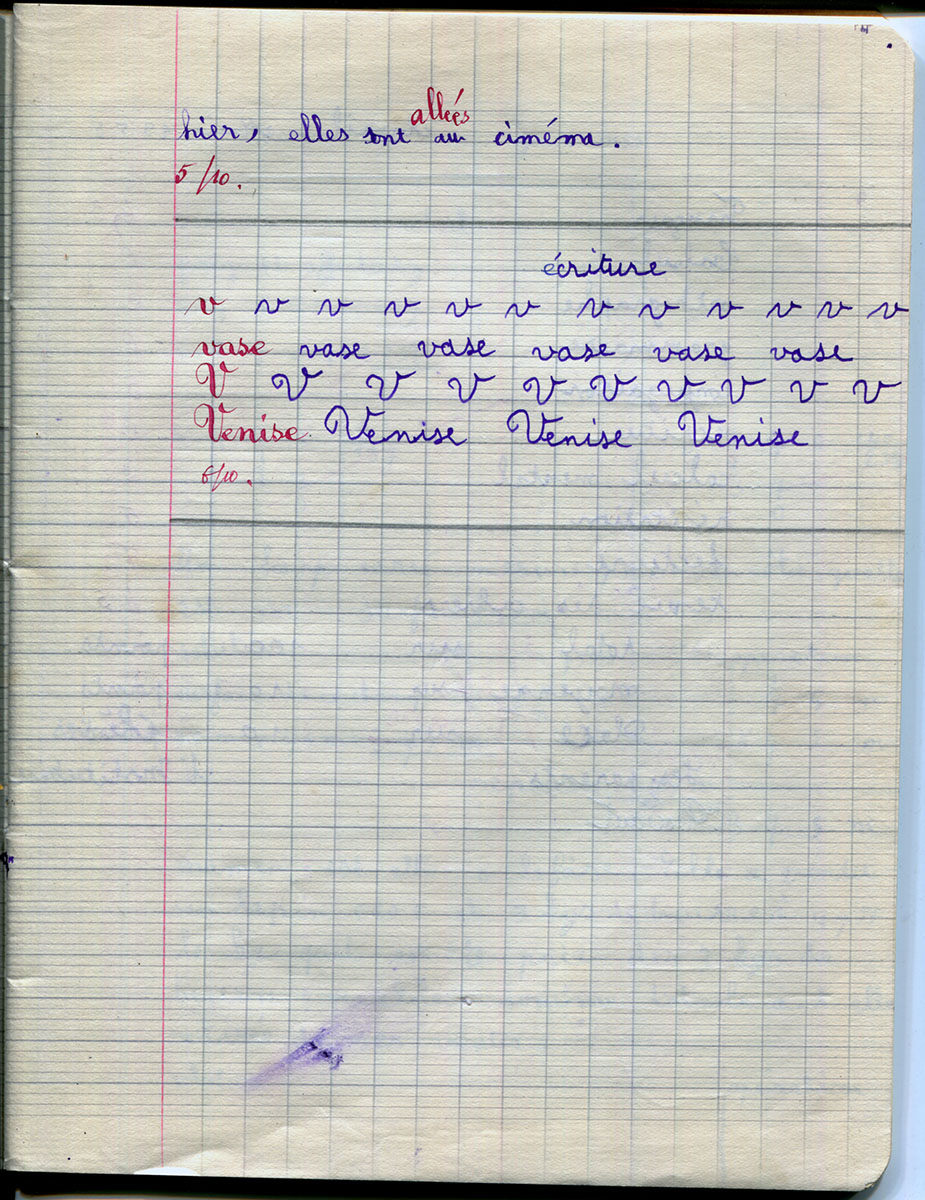 allées
hier, elles sont au ciméma.
5/10.
écriture
v v v v v v v v v v v v
vase vase vase vase vase vase
V V V V V V V V V V
Venise. Venise Venise Venise
6/10.